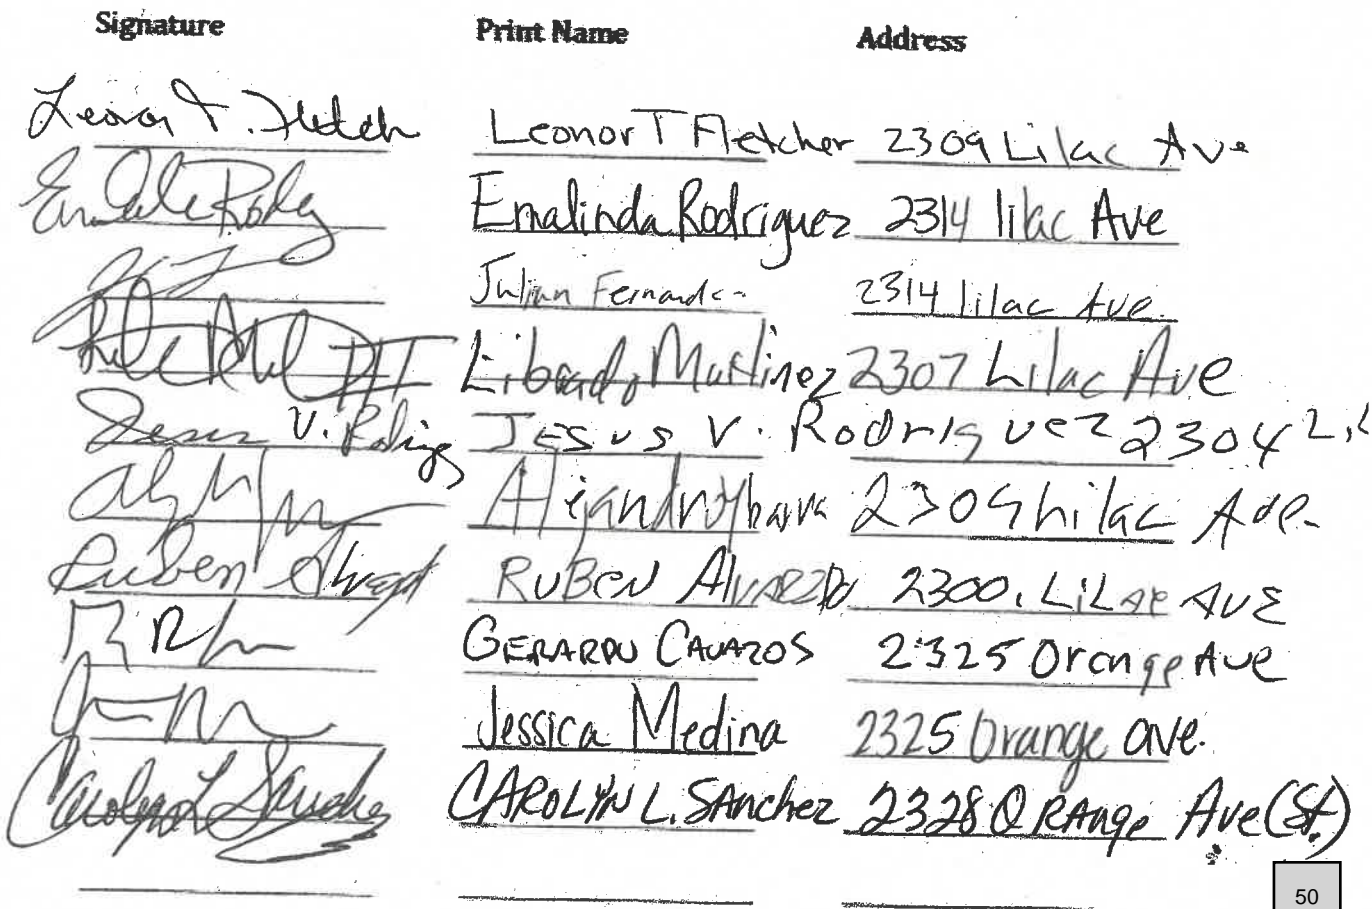 Signature Print Name Address
Leonor T. Fletcher Leonor T Fletcher 2309 Lilac Ave
Emalinda Rodriguez 2314 lilac Ave
Julian Fernandez 2314 lilac Ave.
Librado Martinez 2307 Lilac Ave
Jesus V. Rodriguez Jesus V. Rodriguez 2304 Lil
Alejandro Ybarra 2309 Lilac Ave.
Ruben Alvarado RUBEN ALVARADO 2300. LiLac AVE
GERARDO CAVAZOS 2325 Orange Ave
Jessica Medina 2325 Orange ave.
Carolyn L Sanchez CAROLYN L. SAnchez 2328 ORAnge Ave (St.)
50